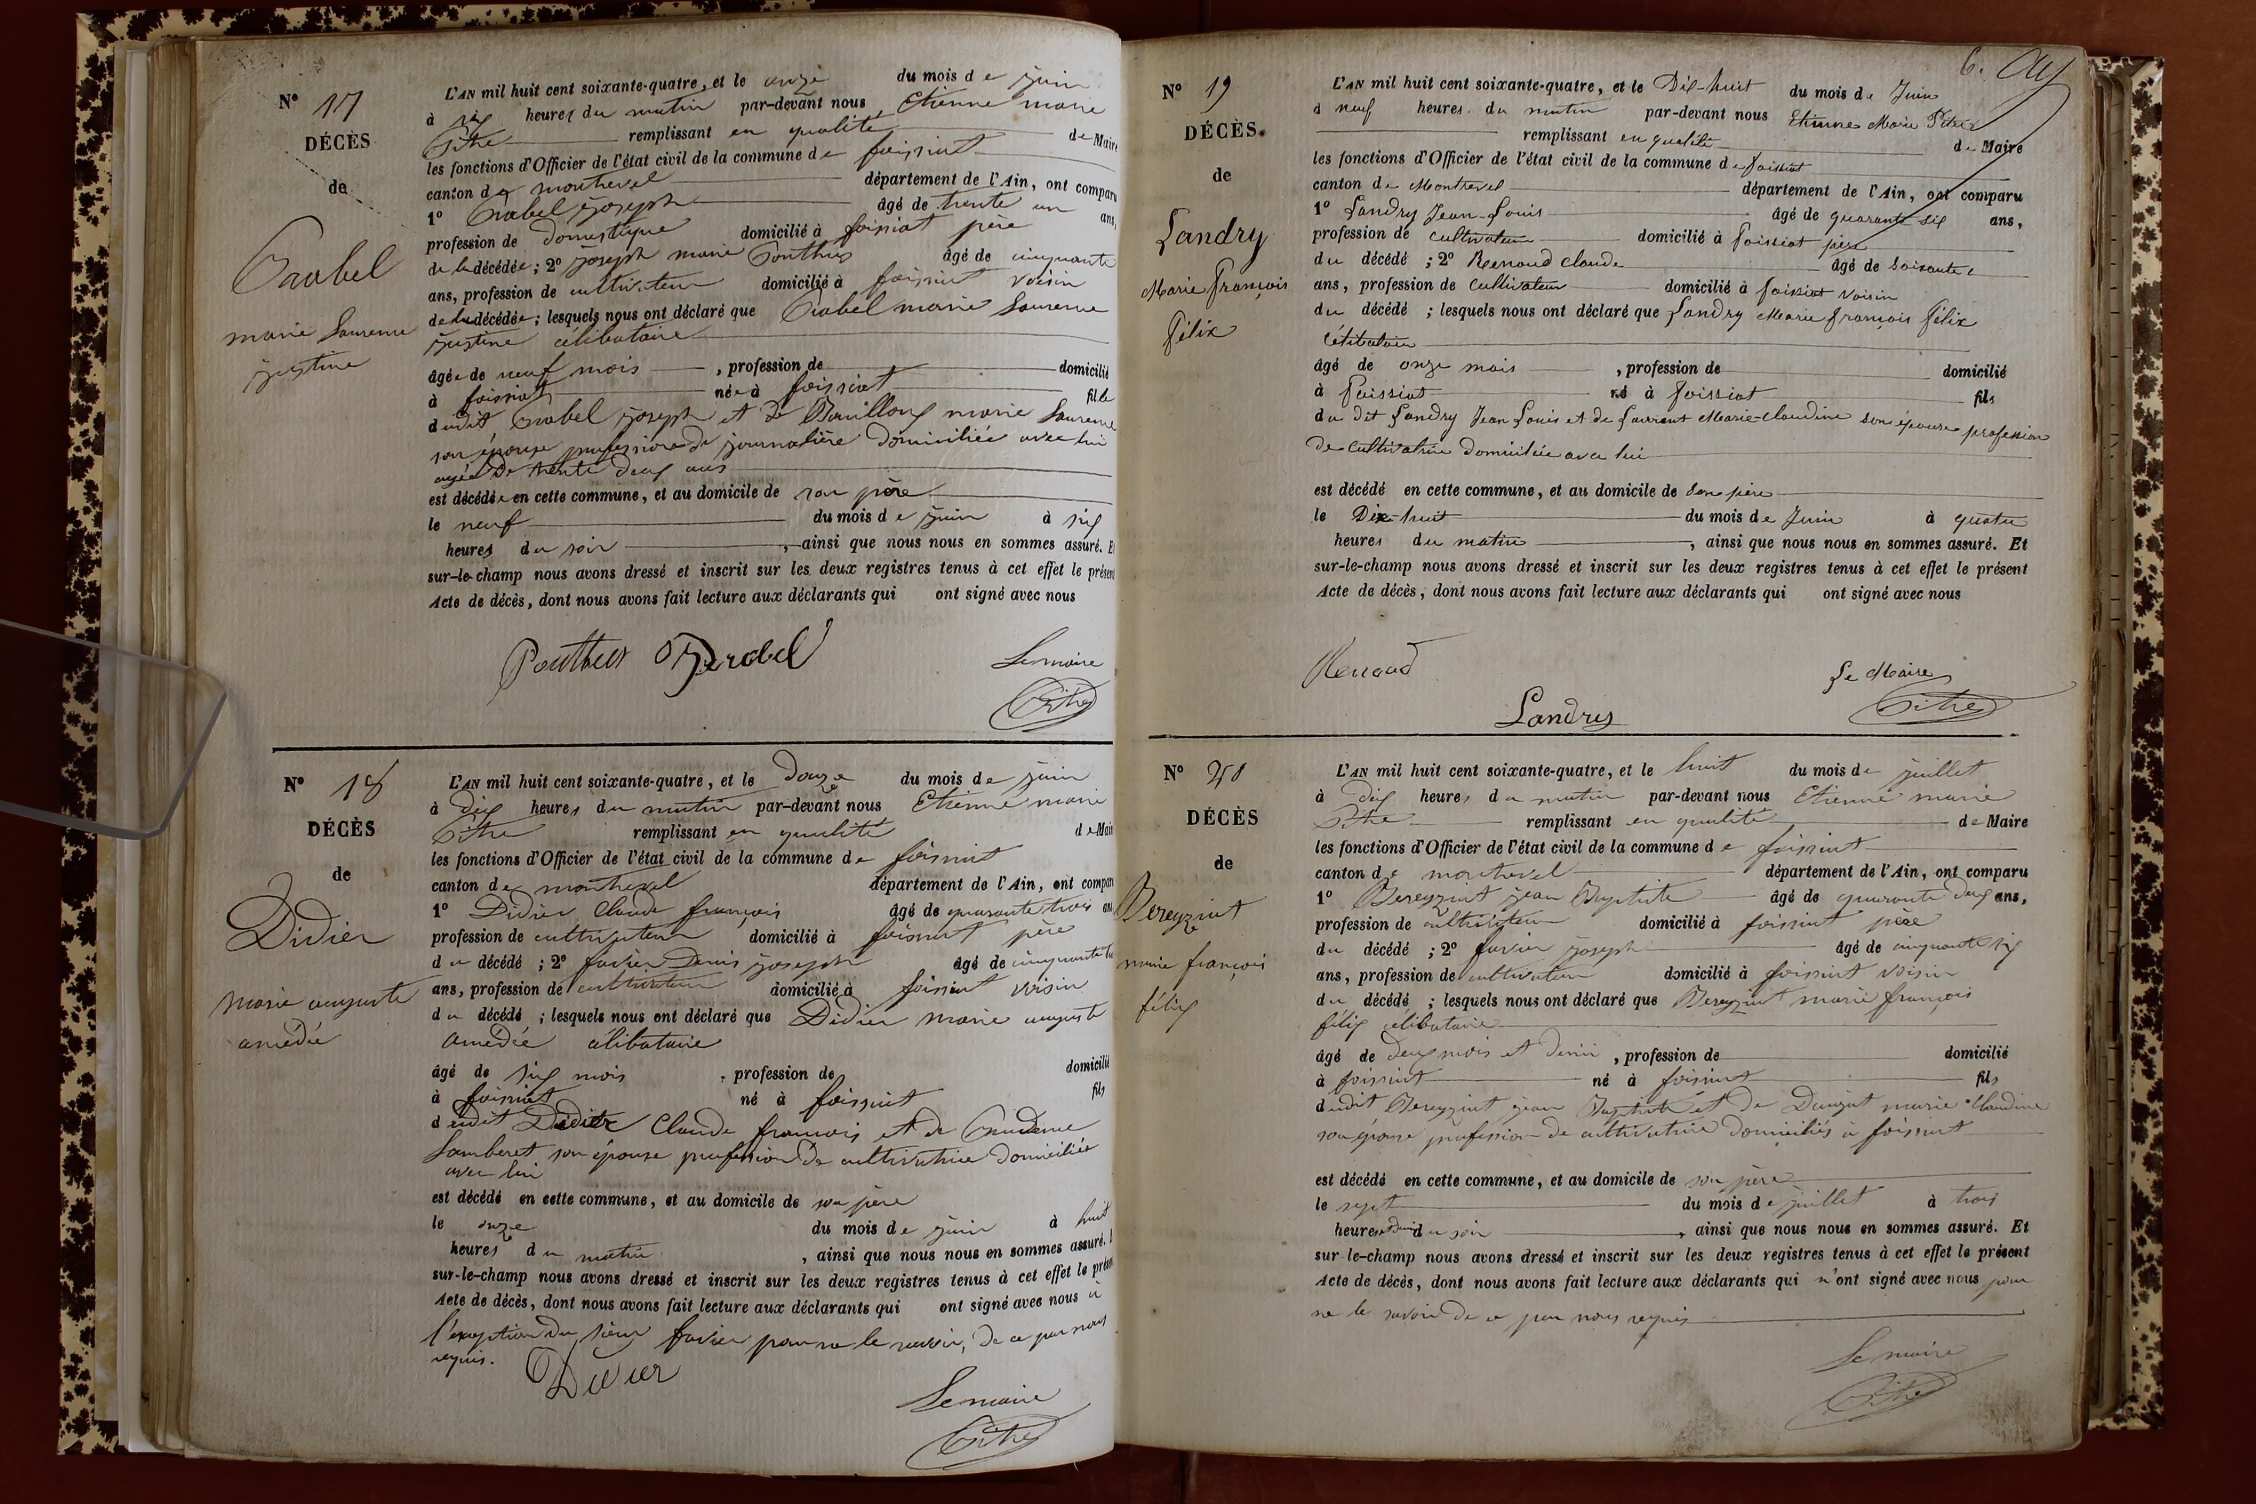 N° 17
DÉCÈS
de
marie Laurence
justine
L'AN mil huit cent soixante-quatre, et le onze du mois de juin
à six heures du matin par-devant nous Etienne marie
Pitre remplissant en qualité de Maire
les fonctions d'Officier de l'état civil de la commune de foissiat
canton de montrevel département de l'Ain, ont comparu
1° joseph âgé de trente un ans,
profession de domestique domicilié à foissiat père
de la décédée ; 2° joseph marie Ponthus âgé de cinquante
ans, profession de cultivateur domicilié à foissiat voisin
de la décédée ; lesquels nous ont déclaré que marie Laurence
justine célibataire
âgée de neuf mois , profession de domicilié
à foissiat née à foissiat fille
dudit joseph et de marie Laurence
son épouse profession de journalière domiciliée avec lui
agée de trente deux ans
est décédée en cette commune, et au domicile de son père
le neuf du mois de juin à six
heures du soir , ainsi que nous nous en sommes assuré. Et
sur-le-champ nous avons dressé et inscrit sur les deux registres tenus à cet effet le présent
Acte de décès, dont nous avons fait lecture aux déclarants qui ont signé avec nous
Ponthus
Le maire
Pitre
N° 18
DÉCÈS
de
Didier
marie auguste
amédée
L'AN mil huit cent soixante-quatre, et le douze du mois de juin
à dix heures du matin par-devant nous Etienne marie
Pitre remplissant en qualité de Maire
les fonctions d'Officier de l'état civil de la commune de foissiat
canton de montrevel département de l'Ain, ont comparu
1° Didier Claude françois âgé de quarante trois ans
profession de cultivateur domicilié à foissiat père
du décédé ; 2° favier Denis joseph âgé de cinquante
ans, profession de cultivateur domicilié à foissiat voisin
du décédé ; lesquels nous ont déclaré que Didier marie auguste
amédée célibataire
âgé de six mois , profession de domicilié
à foissiat né à foissiat fils
dudit Didier Claude francois et de Prudence
Lamberet son épouse profession de cultivatrice domiciliée
avec lui
est décédé en cette commune, et au domicile de son père
le onze du mois de juin à huit
heures du matin , ainsi que nous nous en sommes assuré.
sur-le-champ nous avons dressé et inscrit sur les deux registres tenus à cet effet le présent
Acte de décès, dont nous avons fait lecture aux déclarants qui ont signé avec nous à
l'exception du sieur favier pour ne le savoir, de ce par nous
requis.
Didier
Le maire
Pitre
6.
N° 19
DÉCÈS.
de
Landry
Marie François
Félix
L'AN mil huit cent soixante-quatre, et le Dix-huit du mois de Juin
à neuf heures du matin par-devant nous Etienne Marie Pitre
remplissant en qualité de Maire
les fonctions d'Officier de l'état civil de la commune de foissiat
canton de Montrevel département de l'Ain, ont comparu
1° Landry Jean-Louis âgé de quarante six ans,
profession de cultivateur domicilié à Foissiat père
du décédé ; 2° Renoud Claude âgé de soixante
ans, profession de Cultivateur domicilié à foissiat voisin
du décédé ; lesquels nous ont déclaré que Landry Marie françois Félix
Célibataire
âgé de onze mois , profession de domicilié
à Foissiat né à foissiat fils
du dit Landry Jean Louis et de Laurent Marie-Claudine son épouse profession
de cultivatrice domiciliée avec lui
est décédé en cette commune, et au domicile de son père
le Dix-huit du mois de Juin à quatre
heures du matin , ainsi que nous nous en sommes assuré. Et
sur-le-champ nous avons dressé et inscrit sur les deux registres tenus à cet effet le présent
Acte de décès, dont nous avons fait lecture aux déclarants qui ont signé avec nous
Renoud
Le Maire
Landry
Pitre
N° 20
DÉCÈS
de
Bereyziat
marie françois
félix
L'AN mil huit cent soixante-quatre, et le huit du mois de juillet
à dix heures du matin par-devant nous Etienne marie
Pitre remplissant en qualité de Maire
les fonctions d'Officier de l'état civil de la commune de foissiat
canton de montrevel département de l'Ain, ont comparu
1° Bereyziat jean Baptiste âgé de quarante deux ans,
profession de cultivateur domicilié à foissiat père
du décédé ; 2° favier joseph âgé de cinquante six
ans, profession de cultivateur domicilié à foissiat voisin
du décédé ; lesquels nous ont déclaré que Bereyziat marie françois
félix célibataire
âgé de deux mois et demi , profession de domicilié
à foissiat né à foissiat fils
dudit Bereyziat jean Baptiste et de Daujat marie Claudine
son épouse profession de cultivatrice domiciliés à foissiat
est décédé en cette commune, et au domicile de son père
le sept du mois de juillet à trois
heures et demi du soir , ainsi que nous nous en sommes assuré. Et
sur-le-champ nous avons dressé et inscrit sur les deux registres tenus à cet effet le présent
Acte de décès, dont nous avons fait lecture aux déclarants qui n'ont signé avec nous pour
ne le savoir de ce par nous requis
Le maire
Pitre